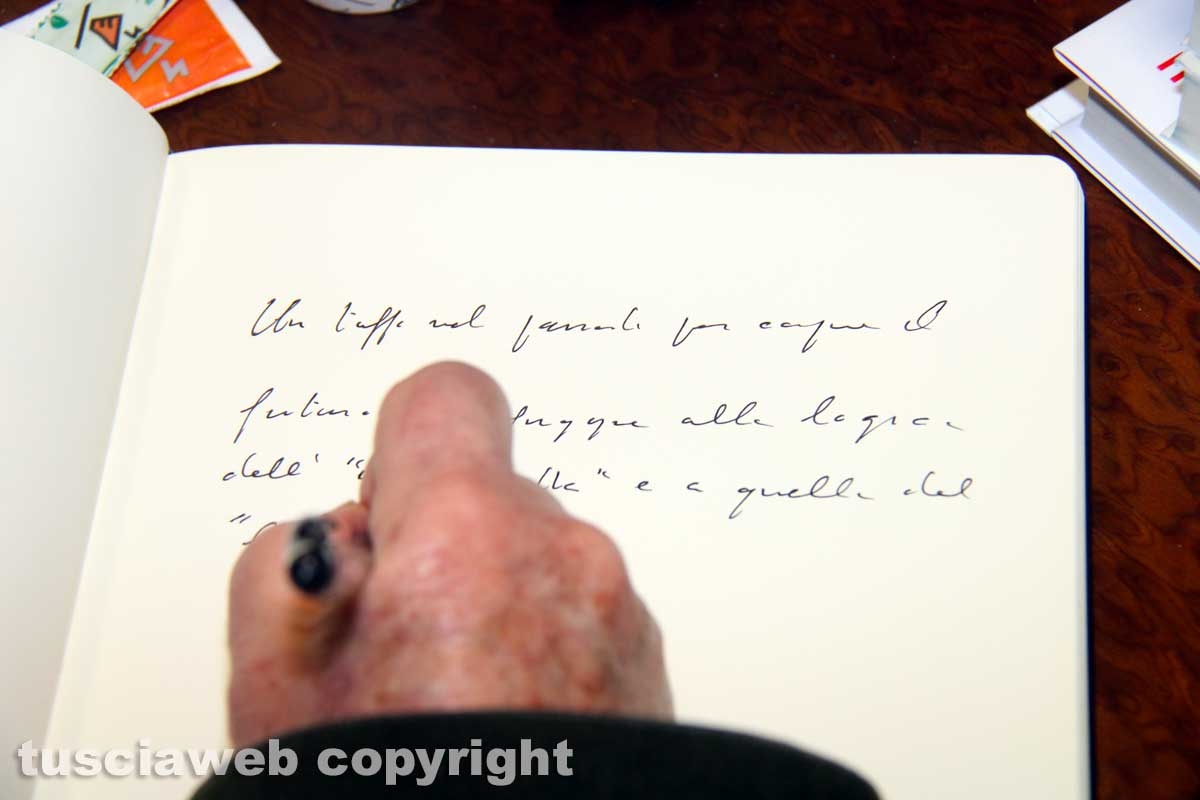 Un tuffo nel passato per capire il
futuro sfugge alla logica
dell' " lla" e a quella del
"
tusciaweb copyright